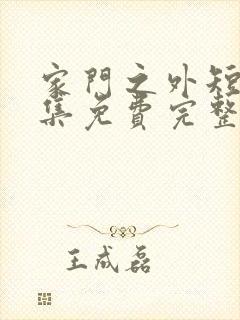 家門之外短
集免費完整
王成磊